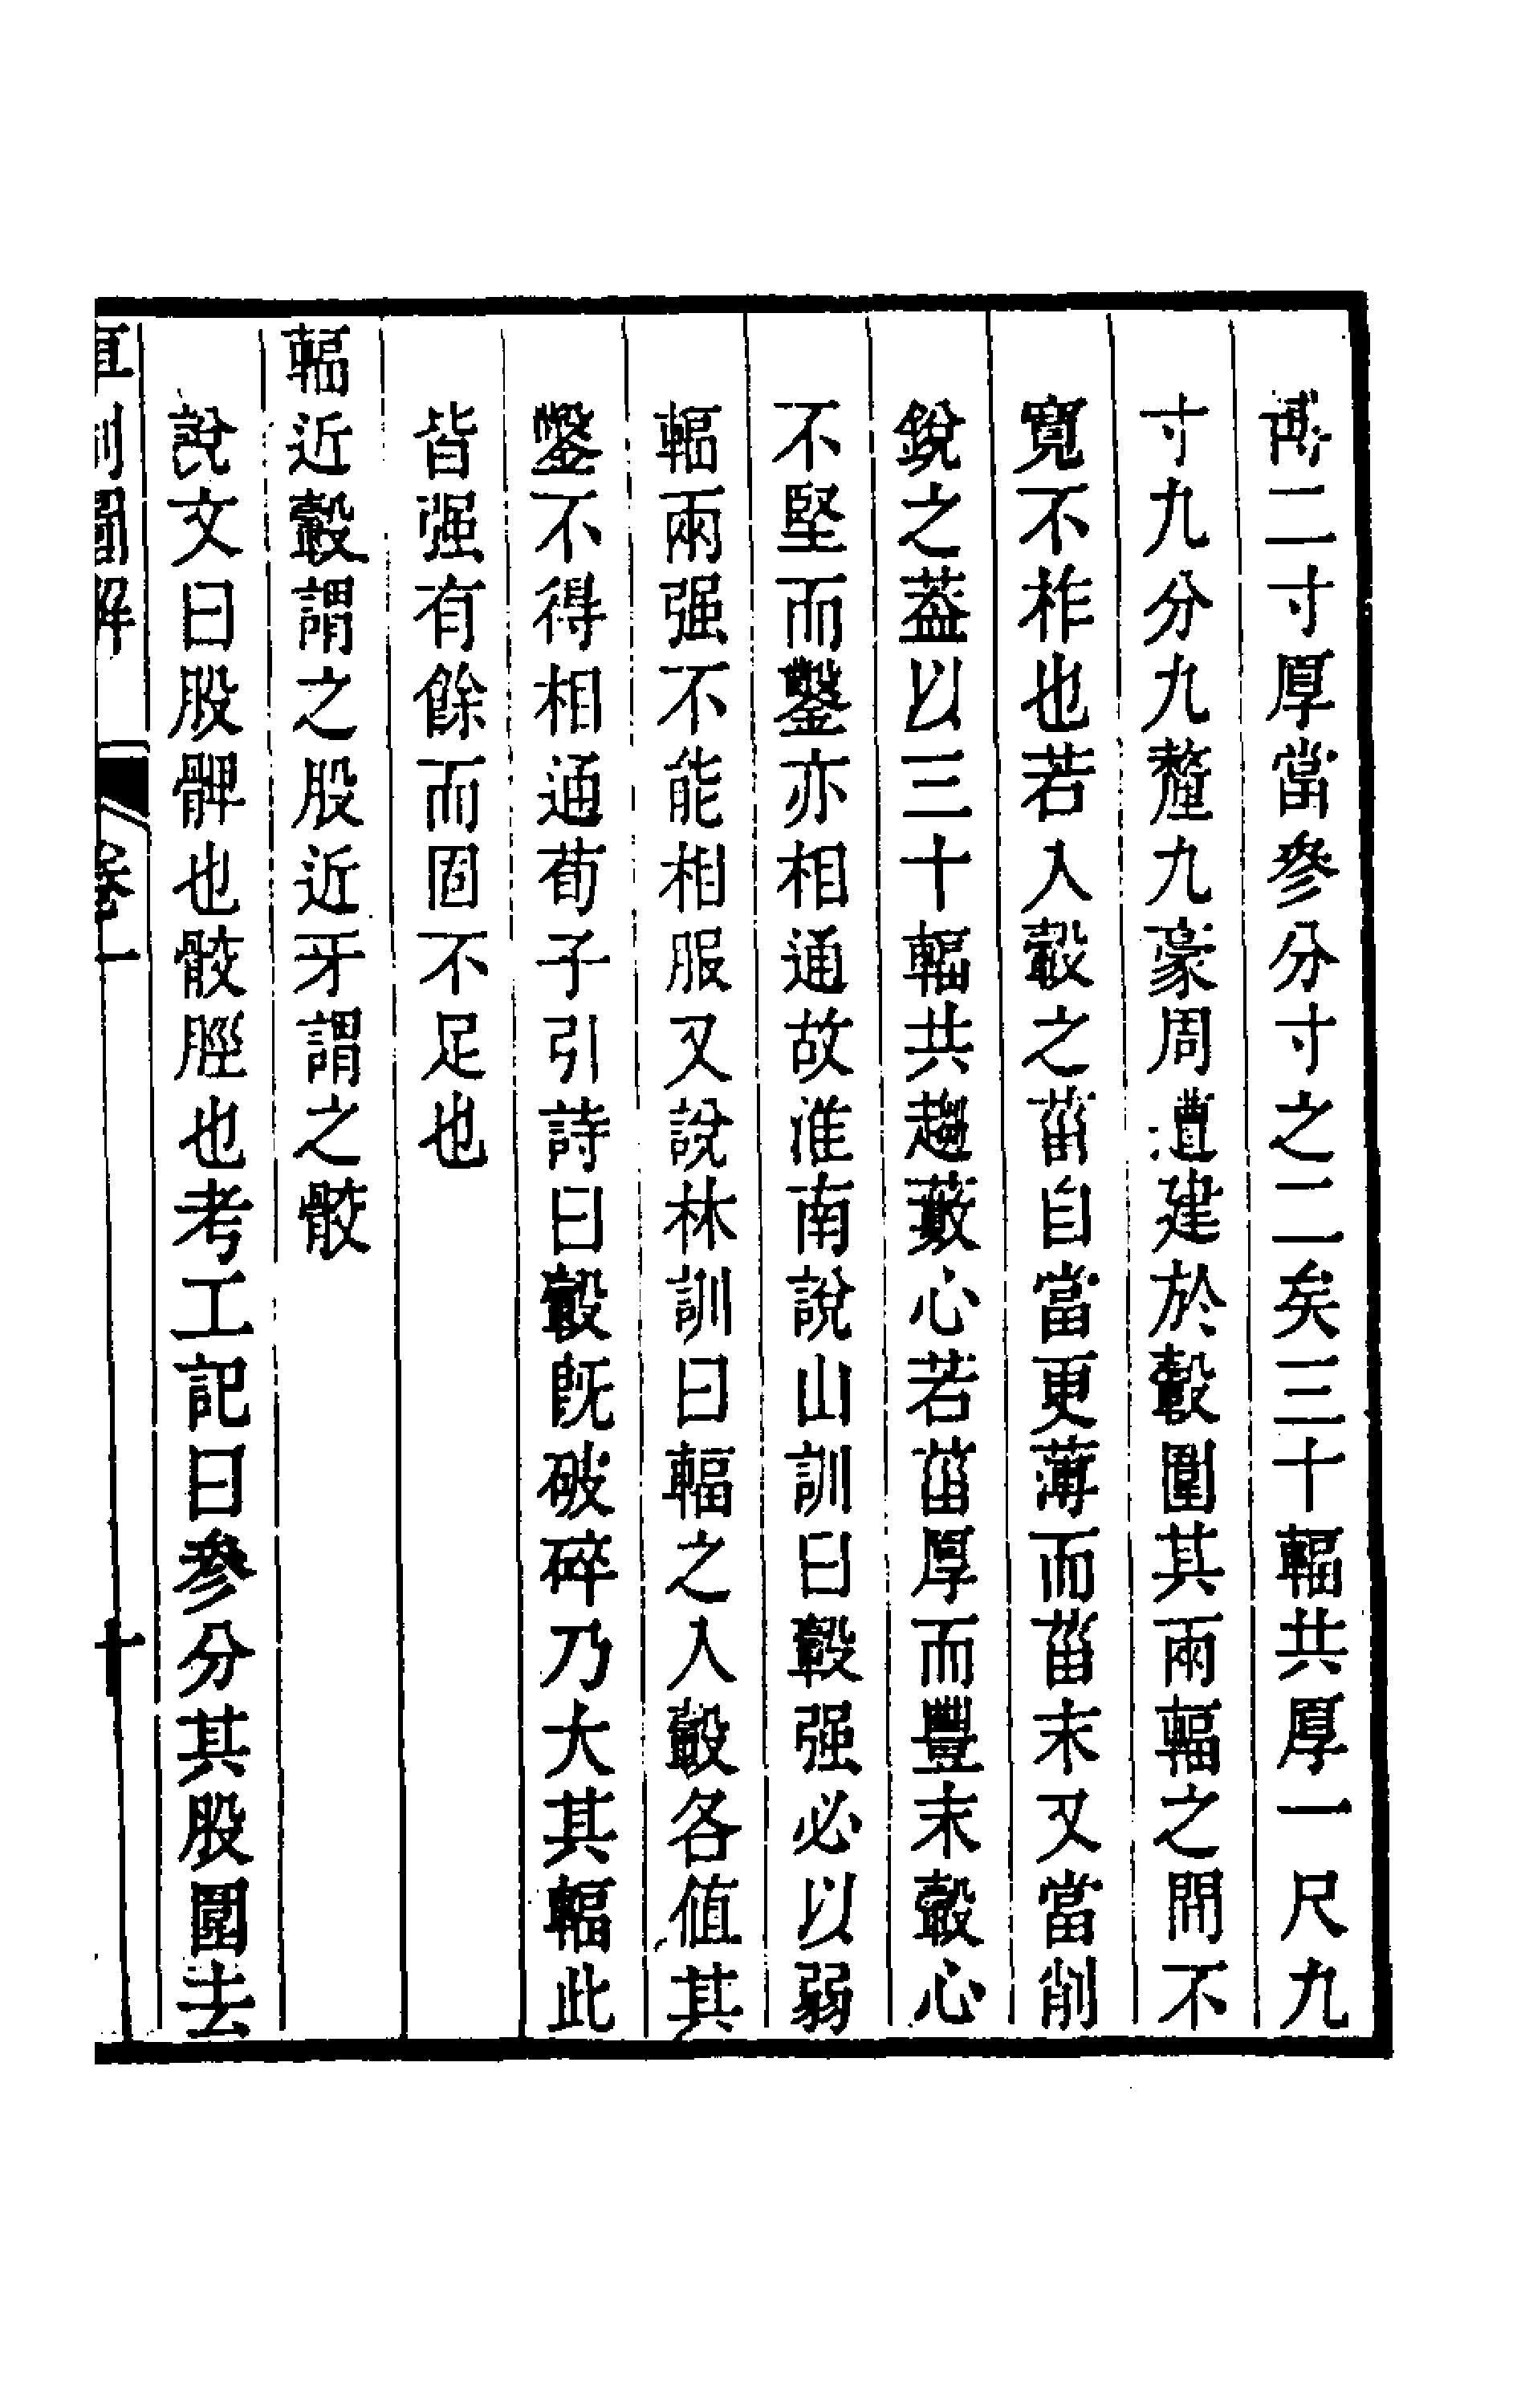 博二寸厚當參分寸之二矣三十輻共厚一尺九
寸九分九釐九豪周遭建於轂圍其兩輻之閒不
寬不柞也若入轂之菑自當更薄而菑末又當削
銳之葢以三十輻共趨藪心若菑厚而豐末轂心
不堅而鑿亦相通故淮南說山訓曰轂强必以弱
輻兩强不能相服又說林訓曰輻之入轂各值其
鑿不得相通荀子引詩曰轂既破碎乃大其輻此
皆强有餘而固不足也
輻近轂謂之股近牙謂之骹
說文曰股髀也骹脛也考工記曰參分其股圍去
車制圖解 卷一 十